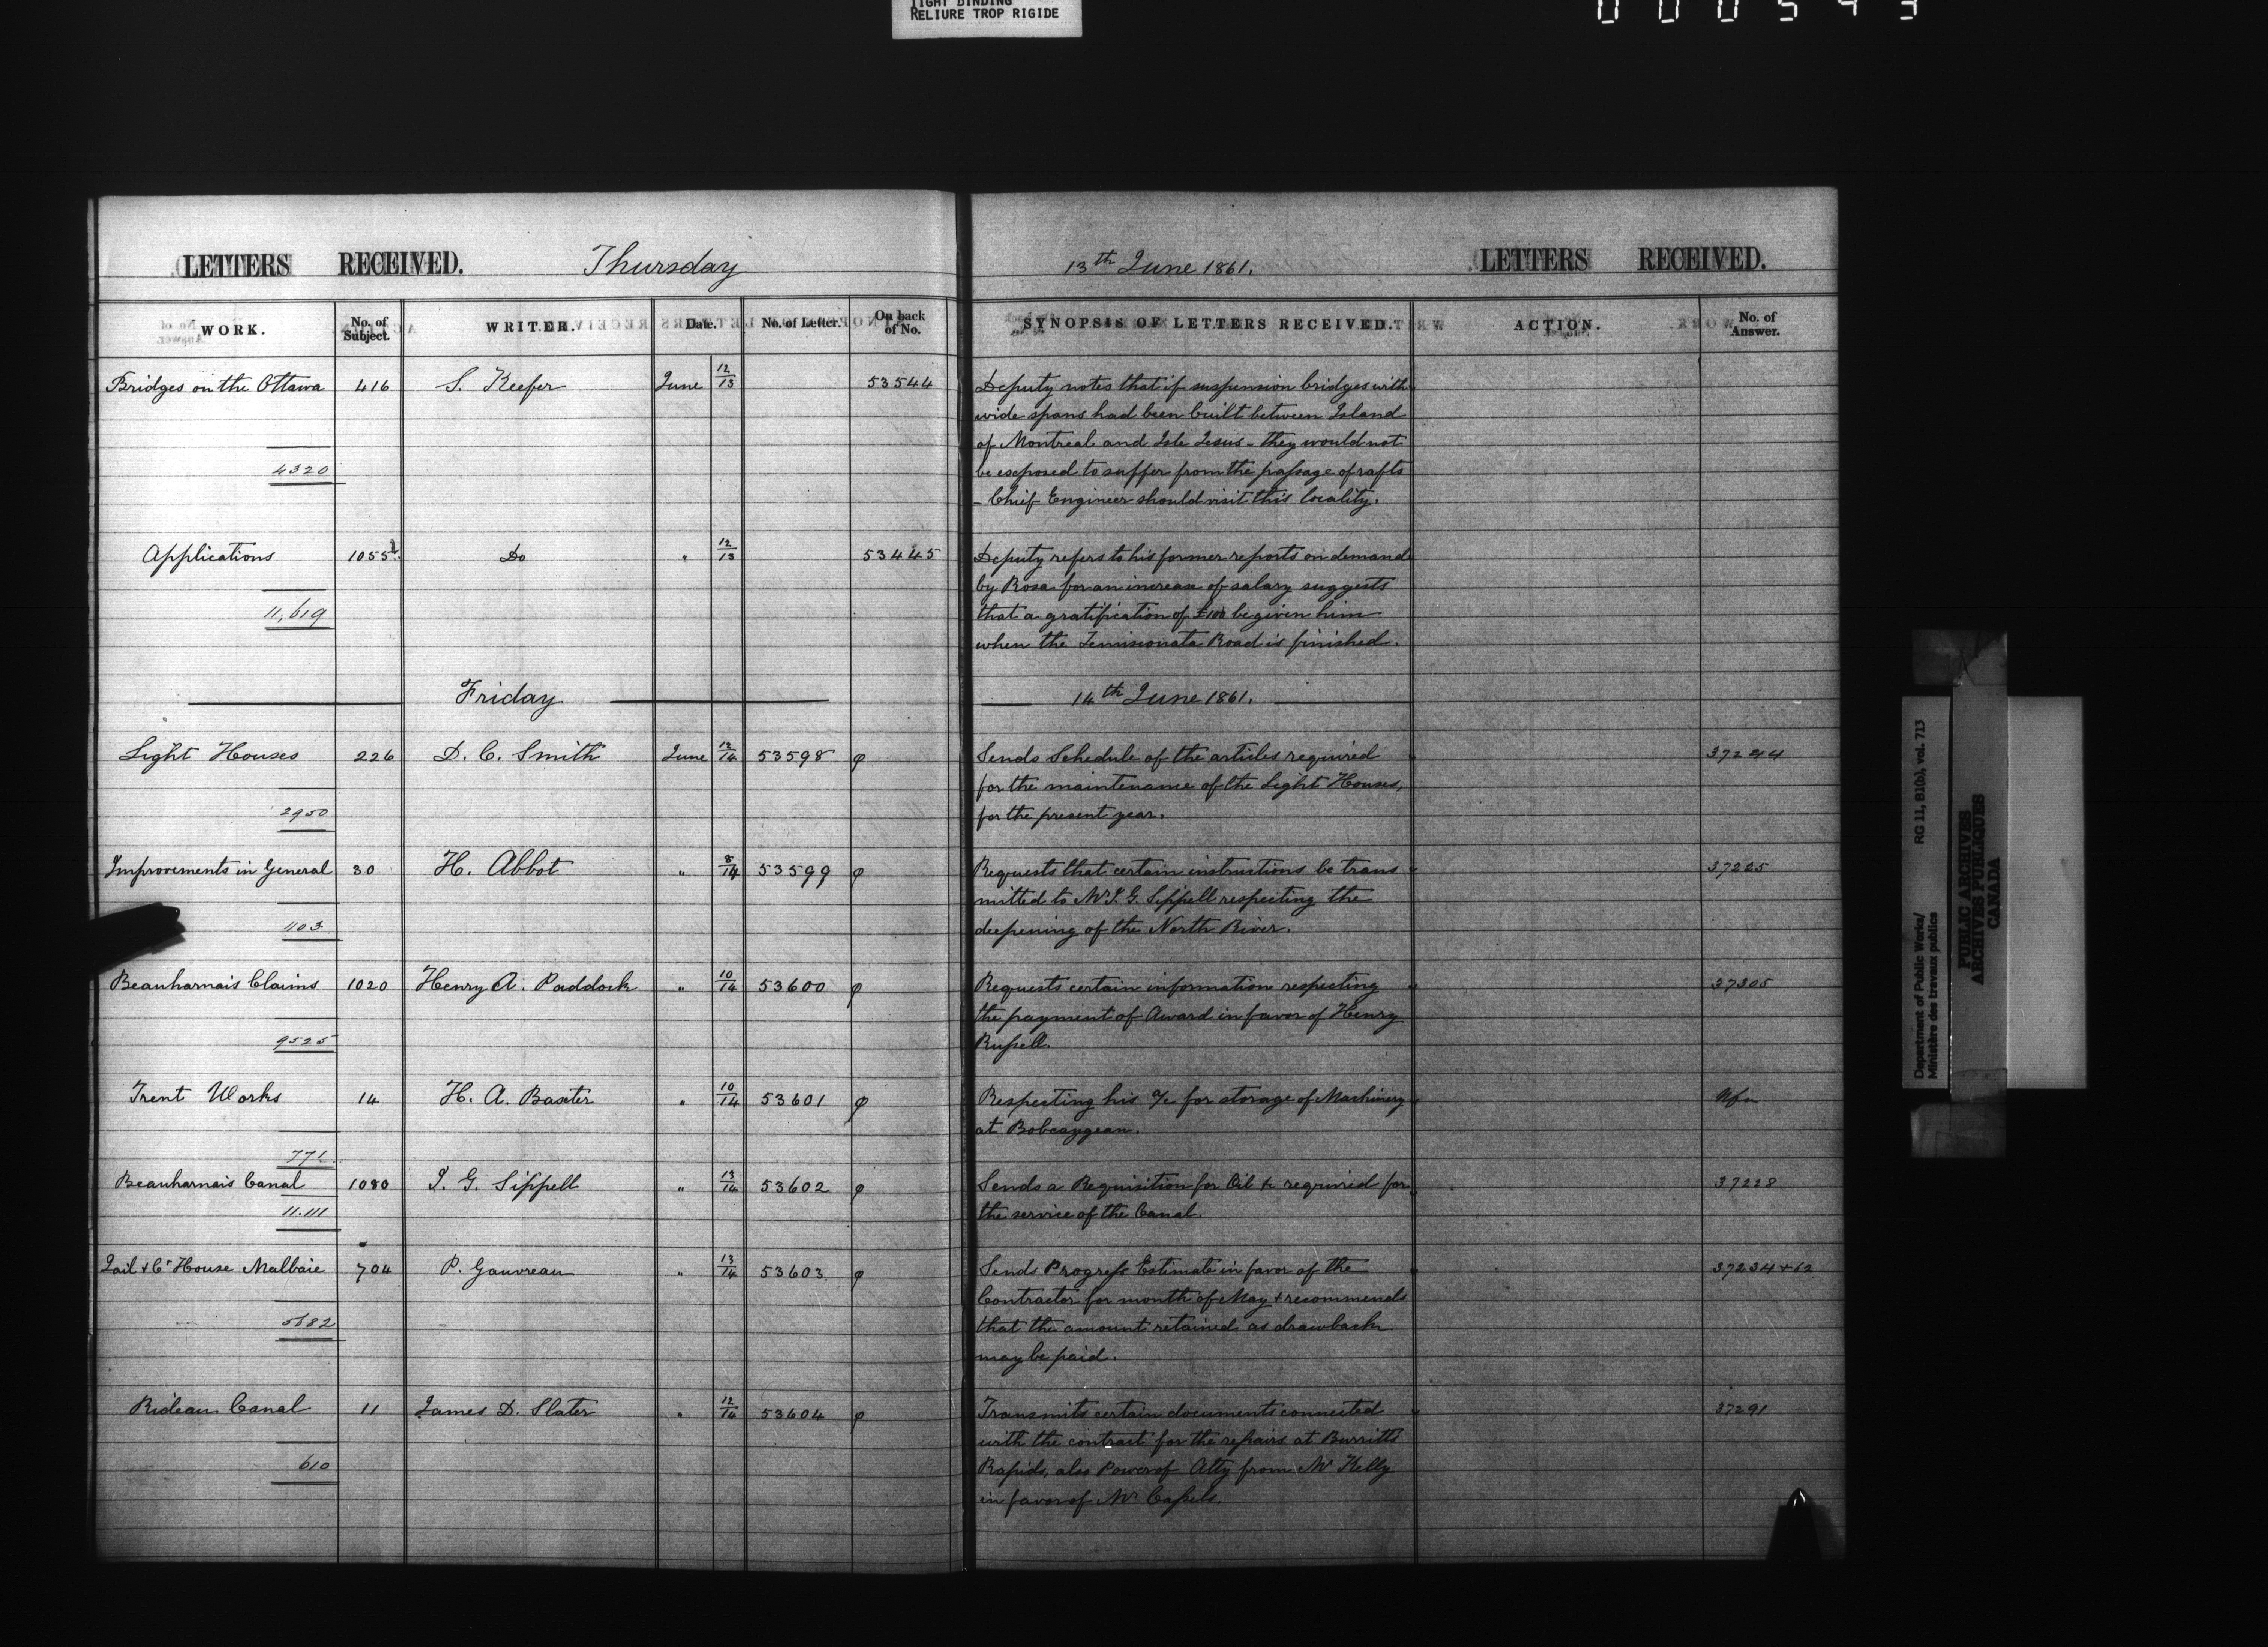 TIGHT BINDING
RELIURE TROP RIGIDE
000543
LETTERS RECEIVED. Thursday 13th June 1861. LETTERS RECEIVED.
WORK. No. of Subject. WRITER. Date. No. of Letter. On back of No. SYNOPSIS OF LETTERS RECEIVED. ACTION. No. of Answer.
Bridges on the Ottawa 416 S. Keefer June 12/13 53544 Deputy notes that if suspension bridges with
wide spans had been built between Island
of Montreal and Isle Jesus - they would not
4320 be exposed to suffer from the passage of rafts
- Chief Engineer should visit this locality.
Applications 1055 Do " 12/13 53445 Deputy refers to his former reports on demand
by Rosa for an increase of salary suggests
11,619 that a gratification of £100 be given him
when the Temisconata Road is finished.
Friday 14th June 1861.
Light Houses 226 D. C. Smith June 12/14 53598 φ Sends Schedule of the articles required 37244
for the maintenance of the Light Houses,
2950 for the present year.
Improvements in General 30 H. Abbot " 8/14 53599 φ Requests that certain instructions be trans 37225
mitted to Mr J. G. Sippell respecting the
1103 deepening of the North River.
Beauharnais Claims 1020 Henry A. Paddock " 10/14 53600 φ Requests certain information respecting 37305
the payment of Award in favor of Henry
9525 Russell.
Trent Works 14 H. A. Baxter " 10/14 53601 φ Respecting his a/c for storage of Machinery Nfa
at Bobcaygean.
771
Beauharnais Canal 1080 J. G. Sippell " 13/14 53602 φ Sends a Requisition for Oil &c required for 37228
11.111 the service of the Canal.
Jail & Ct House Malbaie 704 P. Gauvreau " 13/14 53603 φ Sends Progress Estimate in favor of the 37234 + 62
Contractor for month of May & recommends
5682 that the amount retained as drawback
may be paid.
Rideau Canal 11 James D. Slater " 12/14 53604 φ Transmits certain documents connected 37291
with the contract for the repairs at Burritts
610 Rapids, also Power of Atty from Mr Kelly
in favor of Mr Cassels.
Department of Public Works/ RG 11, B1(b), vol. 713
Ministère des travaux publics
PUBLIC ARCHIVES
ARCHIVES PUBLIQUES
CANADA